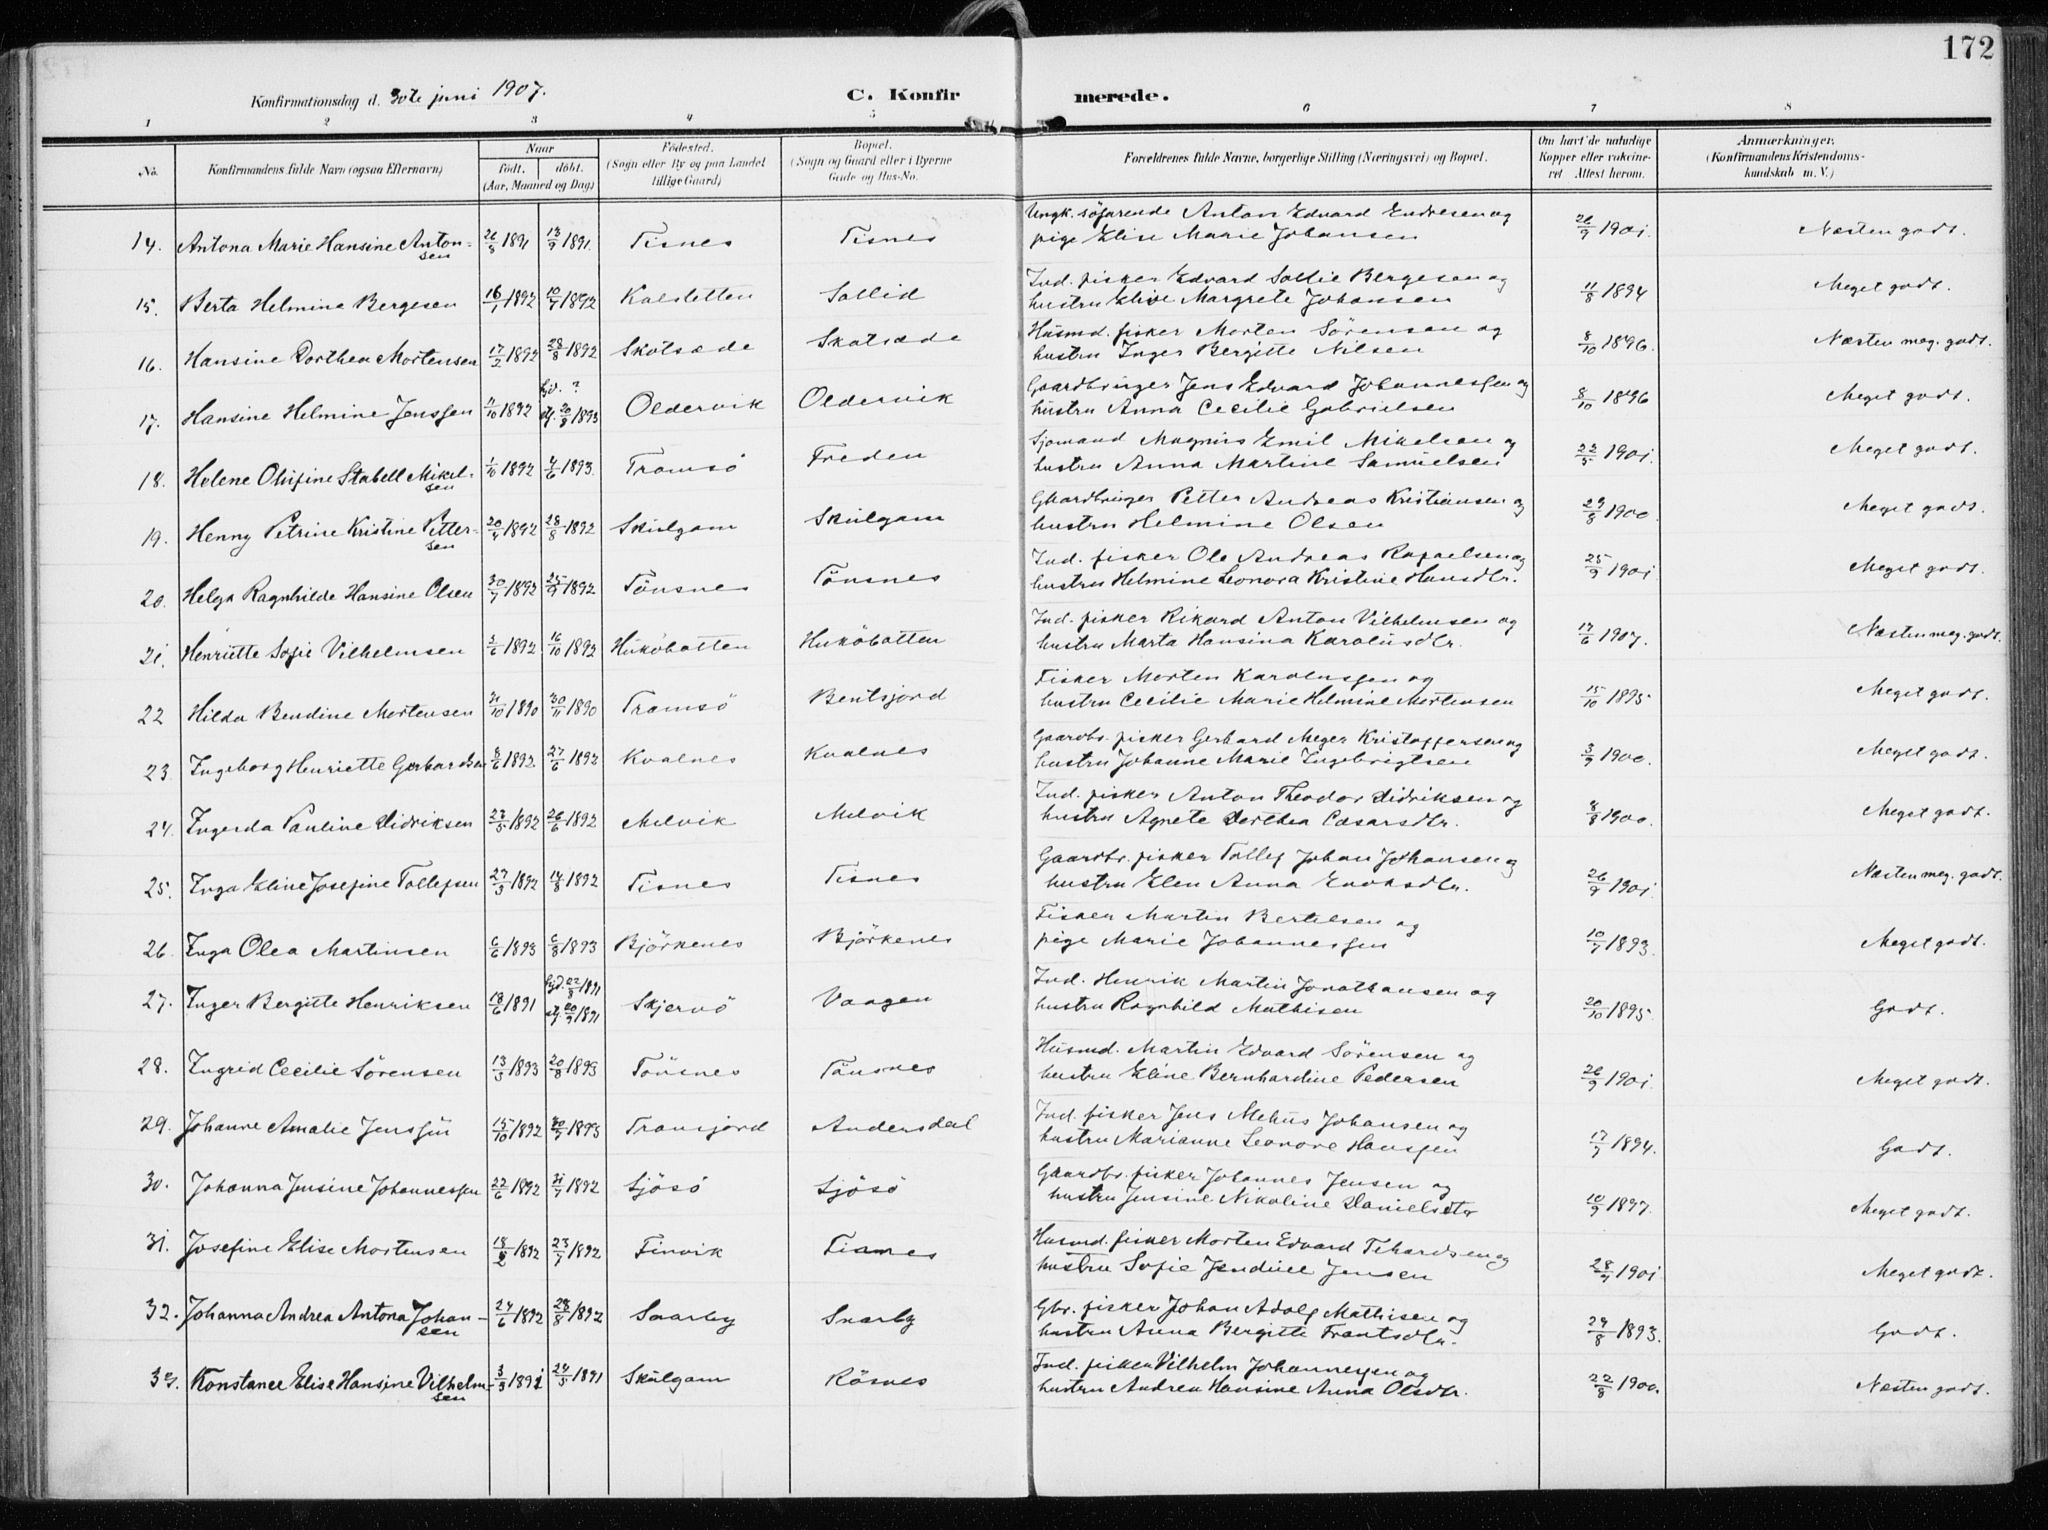 172
Konfirmationsdag d. 30te juni 1907. C. Konfirmerede.
1 2 3 4 5 6 7 8
No. Konfirmandens fulde Navn (ogsaa Efternavn) Naar født. døbt. (Aar, Maaned og Dag) Födested. (Sogn eller By og paa Landet tillige Gaard) Bopæl. (Sogn og Gaard eller i Byerne Gade og Hus-No. Forældrenes fulde Navne, borgerlige Stilling (Næringsvei) og Bopæl. Om havt de naturlige Kopper eller vakcineret Attest herom. Anmærkninger. (Konfirmandens Kristendomskundskab m. V.)
14. Antona Marie Hansine Antonsen 26/8 1891 13/9 1891. Tisnes Tisnes Ungk. søfarende Anton Edvard Endresen og pige Elise Marie Johansen 26/9 1901. Næsten godt.
15. Berta Helmine Bergesen 16/1 1892 10/7 1892 Kalsletten Sollid Ind. fisker Edvard Sollie Bergesen og hustru Elive Margrete Johansen 11/8 1894 Meget godt.
16. Hansine Dorthea Mortensen 17/2 1892 28/8 1892 Skotsæde Skotsæde Husmd. fisker Morten Sörensen og hustru Inger Bergitte Nilsen 8/10 1896. Næsten meg. godt.
17. Hansine Helmine Jenssen 11/10 1892 hjd. ? stf. 20/8 1893 Oldervik Oldervik Gaardbruger Jens Edvard Johannessen og hustru Anna Cecilie Gabrielsen 8/10 1896 Meget godt.
18. Helene Olufine Stabell Mikelsen 1/10 1892 4/6 1893. Tromsö Freden Sjomand Magnus Emil Mikelsen og hustru Anna Martine Samuelsen 22/5 1901. Meget godt.
19. Henny Petrine Kristine Pettersen 20/4 1892 28/8 1892 Skulgam Skulgam Gaardbruger Petter Andreas Kristiansen og hustru Helmine Olsen 29/8 1900. Meget godt.
20. Helga Ragnhilde Hansine Olsen 30/7 1892 25/9 1892 Tönsnes Tönsnes Ind. fisker Ole Andreas Rafaelsen og hustru Helmine Leonora Kristine Hansdtr. 25/9 1901 Meget godt.
21. Henriette Sofie Vilhelmsen 2/6 1892 16/10 1892 Huköbotten Huköbotten Ind. fisker Rikard Anton Vilhelmsen og hustru Marta Hansina Karolusdtr. 17/6 1907. Næsten meg. godt.
22 Hilda Bendine Mortensen 31/10 1890 30/11 1890 Tromsö Bentsjord Fisker Morten Karolussen og hustru Cecilie Marie Helmine Mortensen 15/10 1895 Meget godt.
23. Ingeborg Henriette Gerhardsen 8/6 1892 27/6 1892 Kvalnes Kvalnes Gaardbr. fisker Gerhard Meyer Kristoffersen og hustru Johanne Marie Ingebrigtsen 3/9 1900. Meget godt.
24. Ingerda Pauline Didriksen 27/5 1892 26/6 1892 Melvik Melvik Ind. fisker Anton Theodor Didriksen og hustru Agnete Dorthea Cæsarsdtr. 8/8 1900. Meget godt.
25. Inga Eline Josefine Tollefsen 27/3 1892 14/8 1892 Tisnes Tisnes Gaardbr. fisker Tollef Johan Johansen og hustru Elen Anna Enoksdtr. 26/9 1901 Næsten meg. godt.
26. Inga Olea Martinsen 6/6 1893 6/8 1893 Björkenes Björkenes Fisker Martin Bertelsen og pige Marie Johannessen 10/7 1893. Meget godt.
27. Inger Bergitte Henriksen 18/6 1891 hjd. 22/8 1891 stf. 20/9 1891 Skjervö Vaagen Ind. Henrik Martin Jonathansen og hustru Ragnhild Mathisen 20/10 1895. Godt.
28. Ingrid Cecilie Sörensen 13/3 1893 20/8 1893 Tönsnes Tönsnes Husmd. Martin Edvard Sörensen og hustru Eline Bernhardine Pedersen 26/9 1901. Meget godt.
29. Johanne Amalie Jenssen 15/10 1892 30/7 1893 Tromsjord Andersdal Ind. fisker Jens Mehus Johansen og hustru Marianne Leonore Hanssen 17/7 1894. Godt.
30. Johanna Jensine Johannessen 22/6 1892 31/7 1892 Sjösö Sjösö Gaardbr. fisker Johannes Jensen og hustru Jensine Nikoline Danielsdtr 10/9 1897. Meget godt.
31. Josefine Elise Mortensen 18/2 1892 23/7 1892 Finvik Tisnes Husmd. fisker Morten Edvard Tehardsen og hustru Sofie Jendine Jensen 28/9 1901 Meget godt.
32. Johanna Andrea Antona Johansen 24/6 1892 28/8 1892 Snarby Snarby Gbr. fisker Johan Adolf Mathisen og hustru Anna Bergitte Frantsdtr. 29/8 1893. Godt.
33. Konstance Elise Hansine Vilhelmsen 3/3 1891 24/5 1891 Skulgam Rösnes Ind. fisker Vilhelm Johannessen og hustru Andrea Hansine Anna Olsdtr. 22/8 1900. Næsten godt.